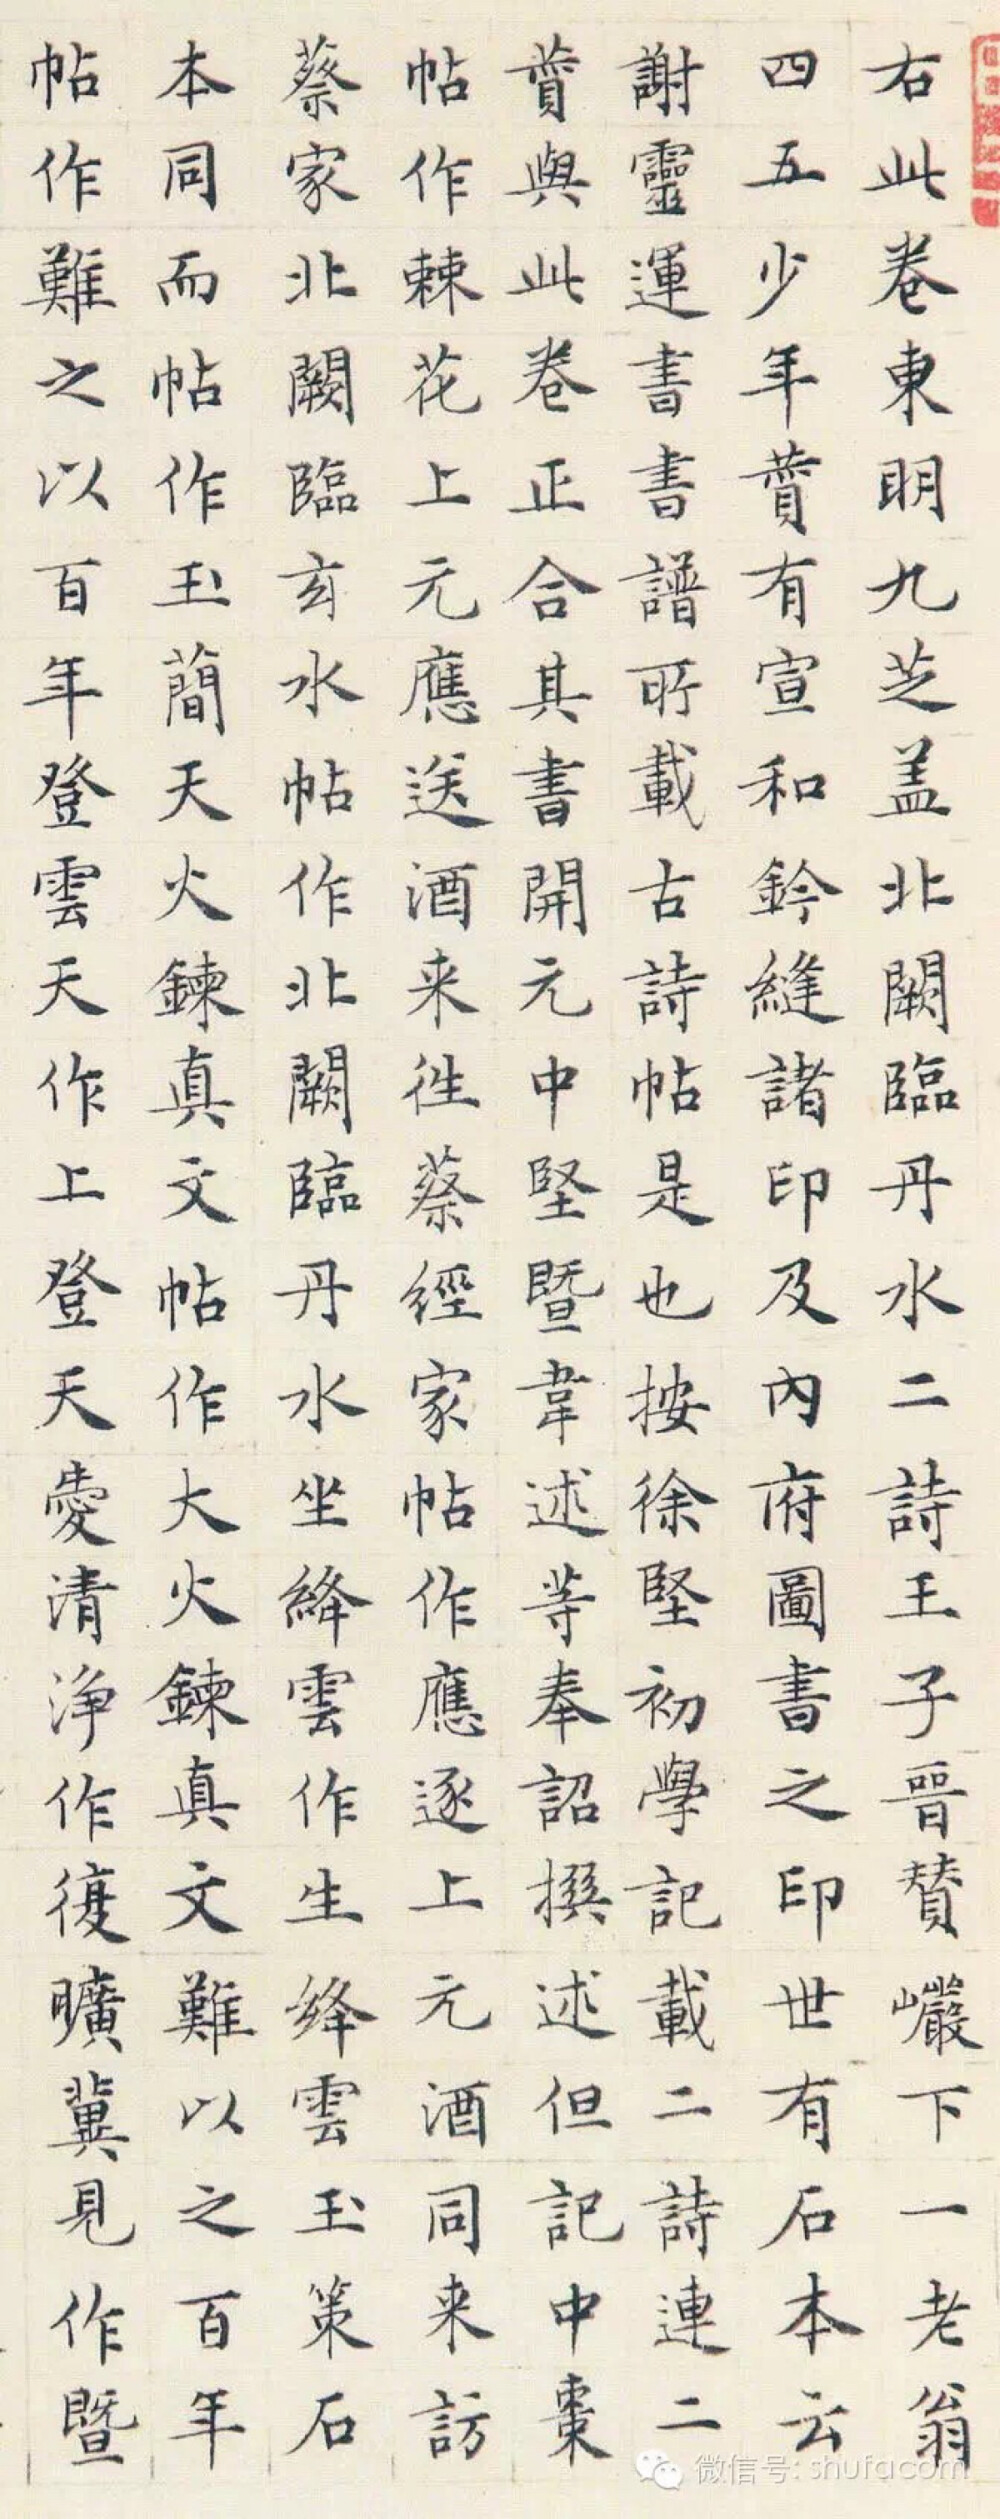 右此卷東明九芝盖北闕臨丹水二詩王子晉賛巗下一老翁
四五少年賛有宣和鈐縫諸印及內府圖書之印世有石本云
謝靈運書書譜所載古詩帖是也按徐堅初學記載二詩連二
賛與此卷正合其書開元中堅暨韋述等奉詔撰述但記中棗
帖作棘花上元應送酒来往蔡經家帖作應逐上元酒同来訪
蔡家北闕臨玄水帖作北闕臨丹水坐絳雲作生絳雲玉策石
本同而帖作玉簡天火鍊真文帖作大火鍊真文難以之百年
帖作難之以百年登雲天作上登天愛清浄作復曠冀見作暨
微信号: shufacom